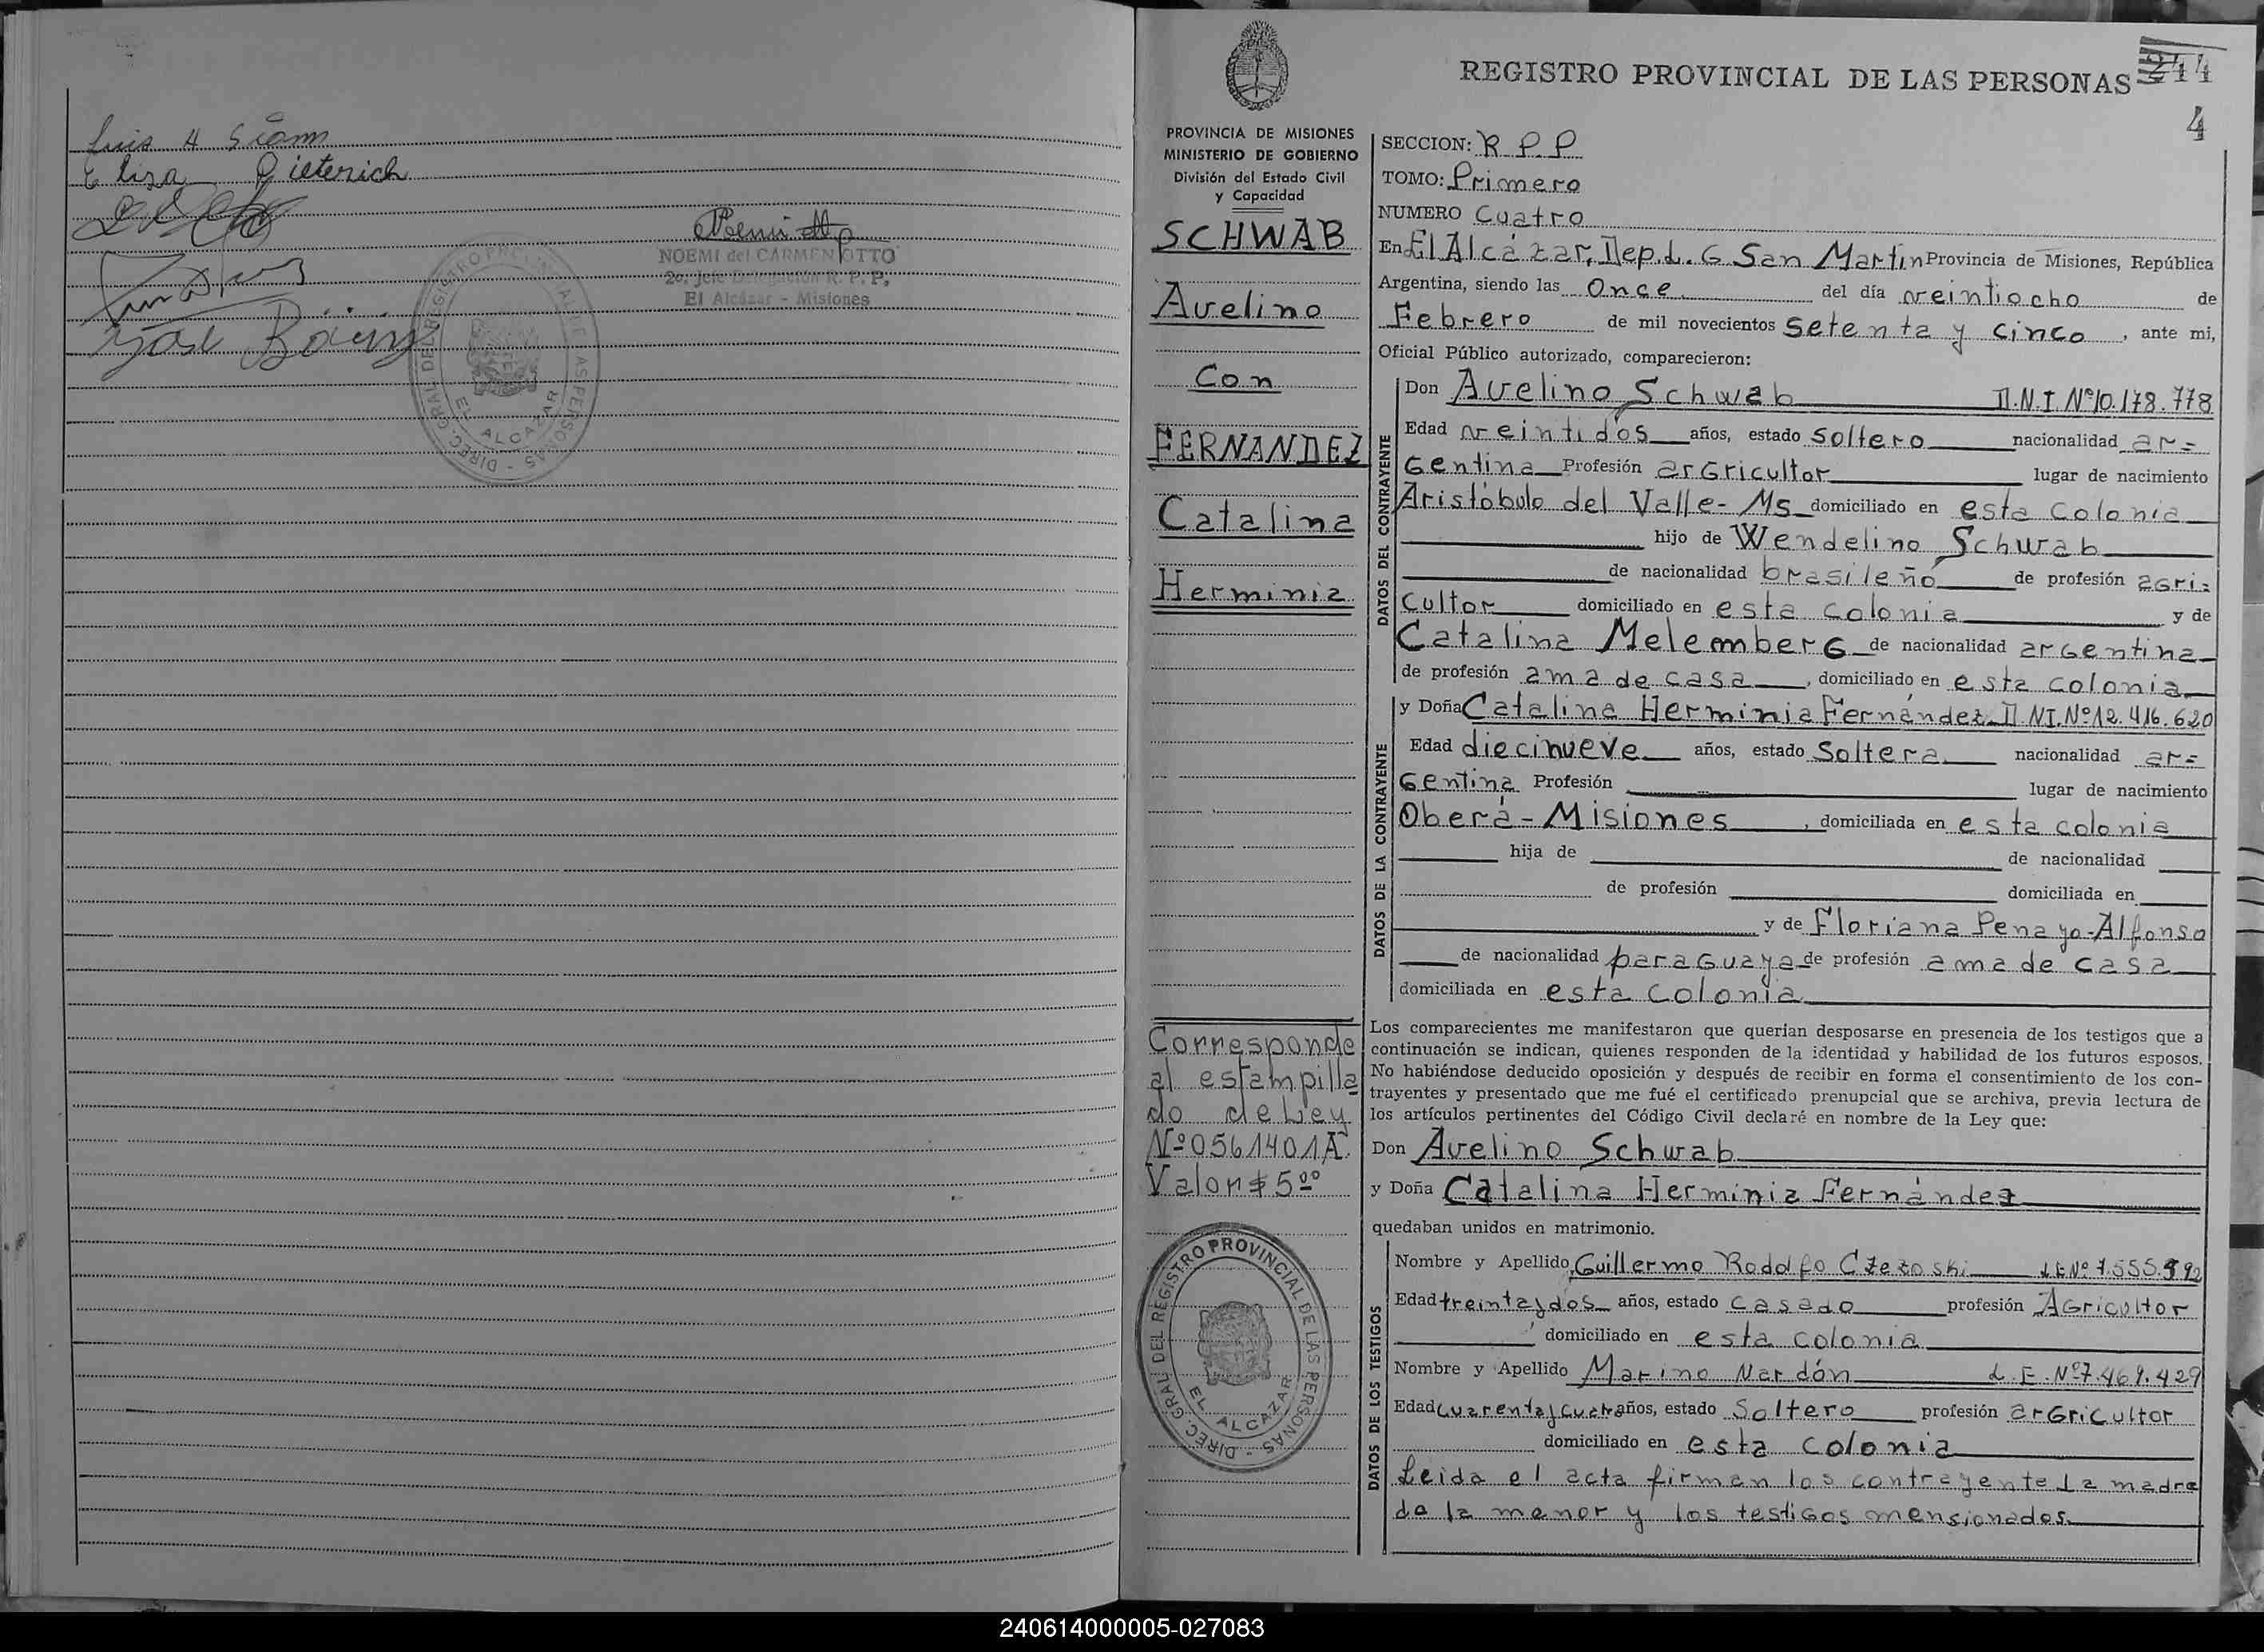 Luis A
Elisa Dieterich
Noemi
NOEMI del CARMEN OTTO
2o. Jefe Delegación R. P. P.
El Alcázar - Misiones
José
DIREC. GRAL DEL REGISTRO PROVINCIAL DE LAS PERSONAS -
EL ALCAZAR
REGISTRO PROVINCIAL DE LAS PERSONAS 244
4
PROVINCIA DE MISIONES
MINISTERIO DE GOBIERNO
División del Estado Civil
y Capacidad
SCHWAB
Avelino
Con
FERNANDEZ
Catalina
Herminia
Corresponde
al estampilla
do de Ley
Nº 0561401A.
Valor $ 5ºº
DIREC. GRAL DEL REGISTRO PROVINCIAL DE LAS PERSONAS -
EL ALCAZAR
SECCION: R P.P
TOMO: Primero
NUMERO Cuatro
En El Alcázar, Dep. L. G San Martín Provincia de Misiones, República
Argentina, siendo las Once del día veintiocho de
Febrero de mil novecientos setenta y cinco, ante mi,
Oficial Público autorizado, comparecieron:
DATOS DEL CONTRAYENTE
Don Avelino Schwab D.N.I. Nº 10.178.778
Edad veintidos años, estado soltero nacionalidad ar=
gentina Profesión argricultor lugar de nacimiento
Aristóbulo del Valle- Ms domiciliado en esta colonia
hijo de Wendelino Schwab
de nacionalidad brasileño de profesión agri=
cultor domiciliado en esta colonia y de
Catalina Melemberg de nacionalidad argentina
de profesión ama de casa, domiciliado en esta colonia
DATOS DE LA CONTRAYENTE
y Doña Catalina Herminia Fernández D NI. Nº 12.416.620
Edad diecinueve años, estado Soltera nacionalidad ar=
gentina Profesión lugar de nacimiento
Oberá - Misiones, domiciliada en esta colonia
hija de de nacionalidad
de profesión domiciliada en
y de Floriana Penayo-Alfonso
de nacionalidad paraguaya de profesión ama de casa
domiciliada en esta colonia
Los comparecientes me manifestaron que querían desposarse en presencia de los testigos que a
continuación se indican, quienes responden de la identidad y habilidad de los futuros esposos.
No habiéndose deducido oposición y después de recibir en forma el consentimiento de los con-
trayentes y presentado que me fué el certificado prenupcial que se archiva, previa lectura de
los artículos pertinentes del Código Civil declaré en nombre de la Ley que:
Don Avelino Schwab
y Doña Catalina Herminia Fernández
quedaban unidos en matrimonio.
DATOS DE LOS TESTIGOS
Nombre y Apellido Guillermo Rodolfo Czezoski L.E Nº 7.555.992
Edad treinta y dos años, estado casado profesión Agricultor
domiciliado en esta colonia
Nombre y Apellido Marino Nardón L.E. Nº 7.469.429
Edad cuarenta y cuatro años, estado Soltero profesión argricultor
domiciliado en esta colonia
Leida el acta firman los contrayente la madre
de la menor y los testigos mensionados.
240614000005-027083